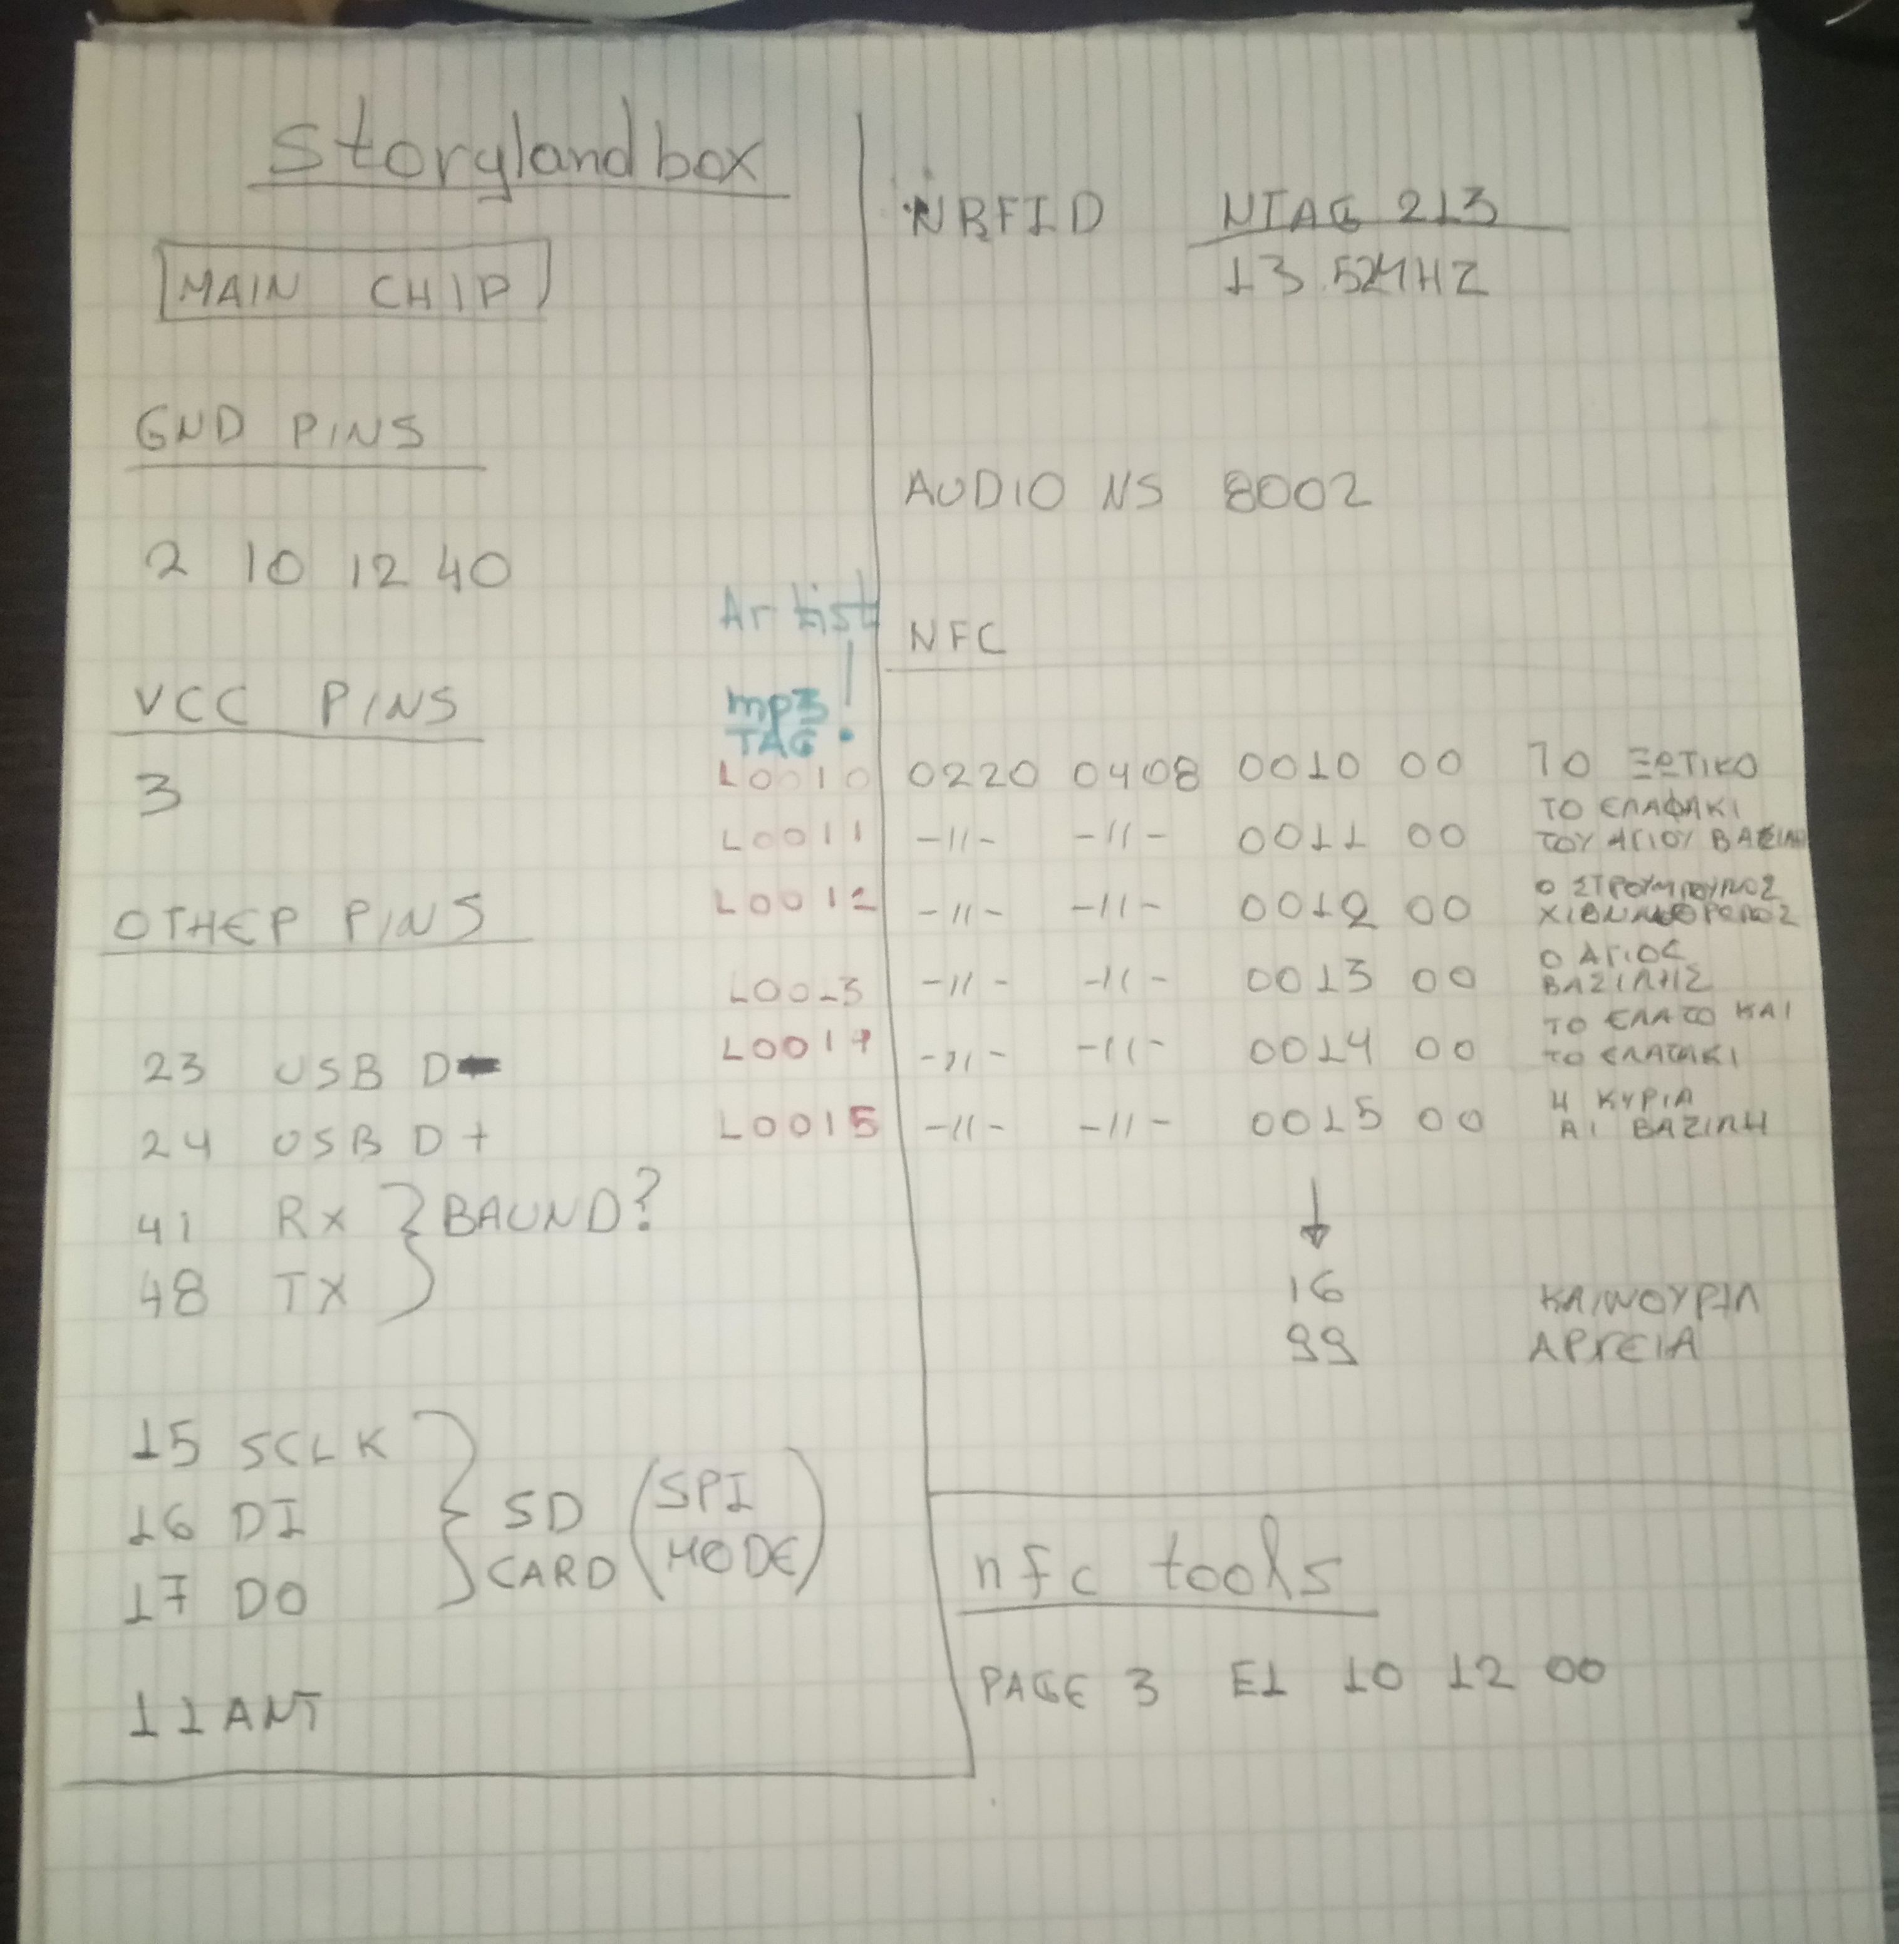 Storyland box
MAIN CHIP
GND PINS
2 10 12 40
VCC PINS
3
OTHEP PINS
23 USB D-
24 USB D+
41 RX
48 TX
BAUND?
15 SCLK
16 DI
17 DO
SD CARD
(SPI MODE)
11 ANT
NRFID NTAG 213
13.52MHZ
AUDIO NS 8002
Artist!
mp3 TAG
NFC
L0010 0220 0408 0010 00 ΤΟ ΞΩΤΙΚΟ
L0011 -//- -//- 0011 00 ΤΟ ΕΛΑΦΑΚΙ
ΤΟΥ ΑΓΙΟΥ ΒΑΣΙΛΗ
L0012 -//- -//- 0012 00 Ο ΣΤΡΟΥΜΠΟΥΛΟΣ
L0013 -//- -//- 0013 00 Ο ΑΓΙΟΣ
ΒΑΣΙΛΗΣ
L0014 -//- -//- 0014 00 ΤΟ ΕΛΑΤΟ ΚΑΙ
ΤΟ ΕΛΑΤΑΚΙ
L0015 -//- -//- 0015 00 Η ΚΥΡΙΑ
ΑΙ ΒΑΣΙΛΗ
↓
16 ΚΑΙΝΟΥΡΙΑ
99 ΑΡΧΕΙΑ
nfc tools
PAGE 3 E1 10 12 00